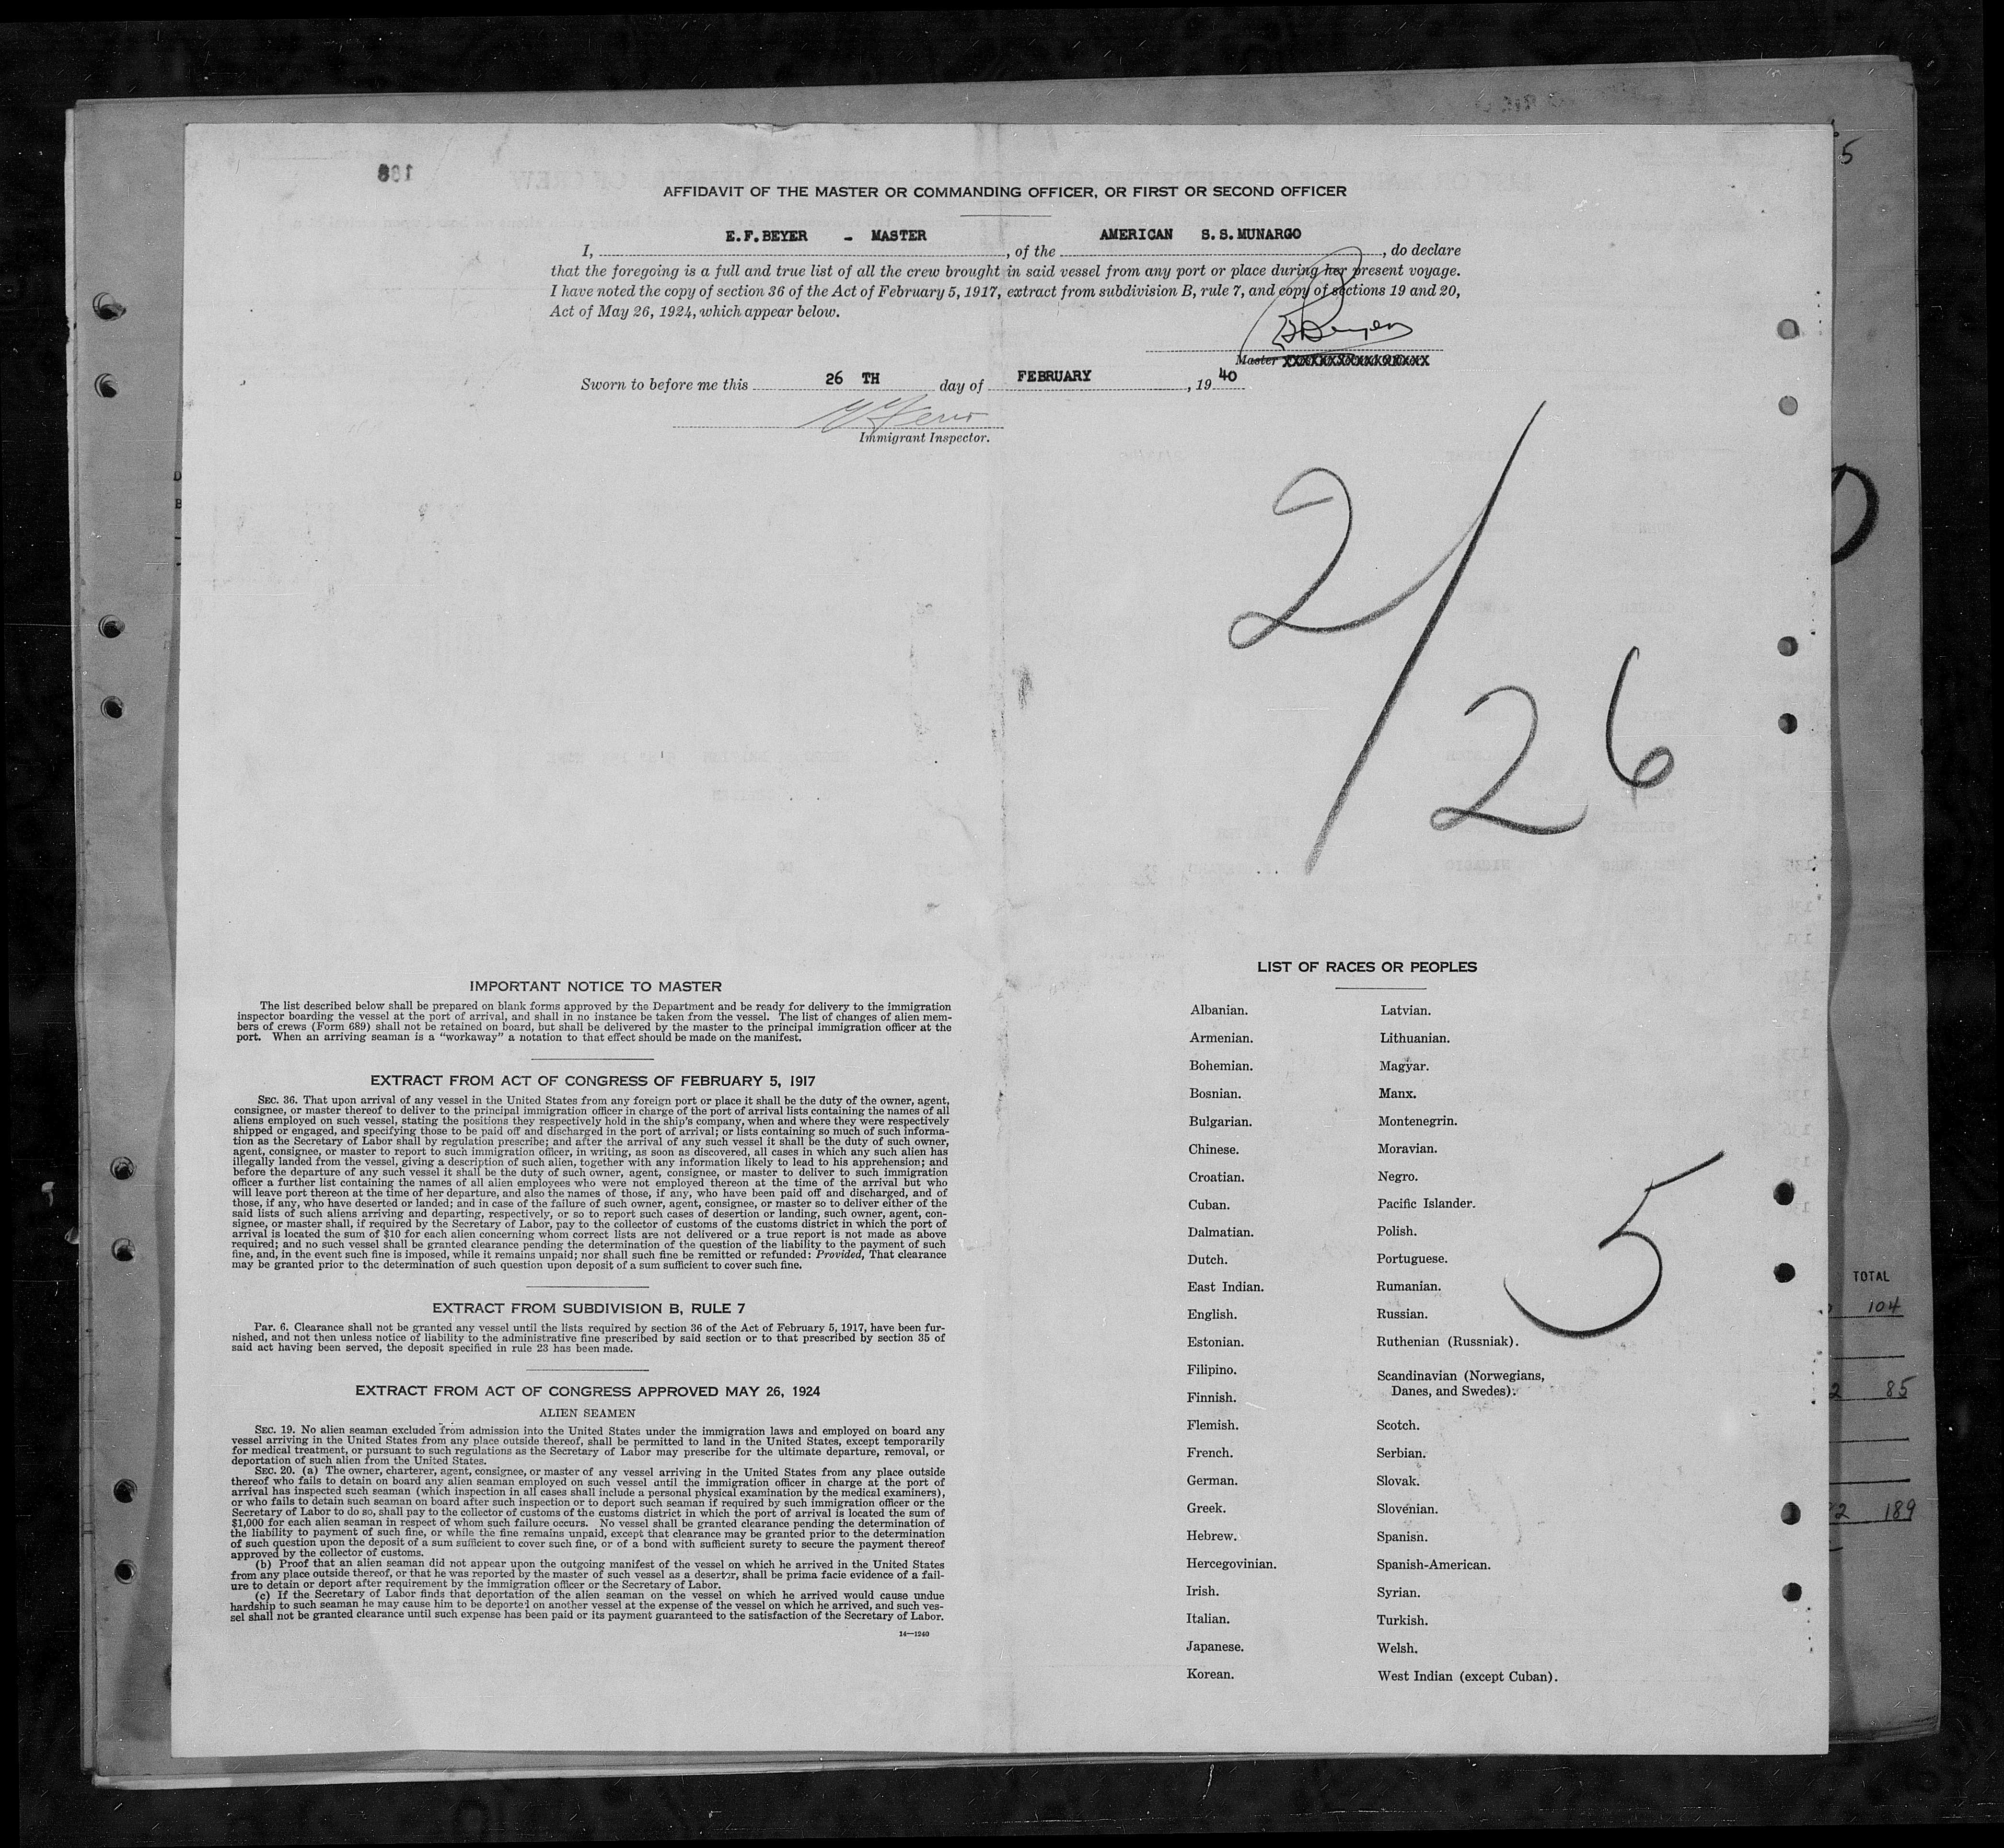 AFFIDAVIT OF THE MASTER OR COMMANDING OFFICER, OR FIRST OR SECOND OFFICER
I, E.F.BEYER - MASTER, of the AMERICAN S.S.MUNARGO, do declare
that the foregoing is a full and true list of all the crew brought in said vessel from any port or place during her present voyage.
I have noted the copy of section 36 of the Act of February 5, 1917, extract from subdivision B, rule 7, and copy of sections 19 and 20,
Act of May 26, 1924, which appear below.
Master
Sworn to before me this 26 TH day of FEBRUARY, 19 40
Immigrant Inspector.
2/26
IMPORTANT NOTICE TO MASTER
The list described below shall be prepared on blank forms approved by the Department and be ready for delivery to the immigration
inspector boarding the vessel at the port of arrival, and shall in no instance be taken from the vessel. The list of changes of alien mem-
bers of crews (Form 689) shall not be retained on board, but shall be delivered by the master to the principal immigration officer at the
port. When an arriving seaman is a "workaway" a notation to that effect should be made on the manifest.
EXTRACT FROM ACT OF CONGRESS OF FEBRUARY 5, 1917
SEC. 36. That upon arrival of any vessel in the United States from any foreign port or place it shall be the duty of the owner, agent,
consignee, or master thereof to deliver to the principal immigration officer in charge of the port of arrival lists containing the names of all
aliens employed on such vessel, stating the positions they respectively hold in the ship's company, when and where they were respectively
shipped or engaged, and specifying those to be paid off and discharged in the port of arrival; or lists containing so much of such informa-
tion as the Secretary of Labor shall by regulation prescribe; and after the arrival of any such vessel it shall be the duty of such owner,
agent, consignee, or master to report to such immigration officer, in writing, as soon as discovered, all cases in which any such alien has
illegally landed from the vessel, giving a description of such alien, together with any information likely to lead to his apprehension; and
before the departure of any such vessel it shall be the duty of such owner, agent, consignee, or master to deliver to such immigration
officer a further list containing the names of all alien employees who were not employed thereon at the time of the arrival but who
will leave port thereon at the time of her departure, and also the names of those, if any, who have been paid off and discharged, and of
those, if any, who have deserted or landed; and in case of the failure of such owner, agent, consignee, or master so to deliver either of the
said lists of such aliens arriving and departing, respectively, or so to report such cases of desertion or landing, such owner, agent, con-
signee, or master shall, if required by the Secretary of Labor, pay to the collector of customs of the customs district in which the port of
arrival is located the sum of $10 for each alien concerning whom correct lists are not delivered or a true report is not made as above
required; and no such vessel shall be granted clearance pending the determination of the question of the liability to the payment of such
fine, and, in the event such fine is imposed, while it remains unpaid; nor shall such fine be remitted or refunded: Provided, That clearance
may be granted prior to the determination of such question upon deposit of a sum sufficient to cover such fine.
EXTRACT FROM SUBDIVISION B, RULE 7
Par. 6. Clearance shall not be granted any vessel until the lists required by section 36 of the Act of February 5, 1917, have been fur-
nished, and not then unless notice of liability to the administrative fine prescribed by said section or to that prescribed by section 35 of
said act having been served, the deposit specified in rule 23 has been made.
EXTRACT FROM ACT OF CONGRESS APPROVED MAY 26, 1924
ALIEN SEAMEN
SEC. 19. No alien seaman excluded from admission into the United States under the immigration laws and employed on board any
vessel arriving in the United States from any place outside thereof, shall be permitted to land in the United States, except temporarily
for medical treatment, or pursuant to such regulations as the Secretary of Labor may prescribe for the ultimate departure, removal, or
deportation of such alien from the United States.
SEC. 20. (a) The owner, charterer, agent, consignee, or master of any vessel arriving in the United States from any place outside
thereof who fails to detain on board any alien seaman employed on such vessel until the immigration officer in charge at the port of
arrival has inspected such seaman (which inspection in all cases shall include a personal physical examination by the medical examiners),
or who fails to detain such seaman on board after such inspection or to deport such seaman if required by such immigration officer or the
Secretary of Labor to do so, shall pay to the collector of customs of the customs district in which the port of arrival is located the sum of
$1,000 for each alien seaman in respect of whom such failure occurs. No vessel shall be granted clearance pending the determination of
the liability to payment of such fine, or while the fine remains unpaid, except that clearance may be granted prior to the determination
of such question upon the deposit of a sum sufficient to cover such fine, or of a bond with sufficient surety to secure the payment thereof
approved by the collector of customs.
(b) Proof that an alien seaman did not appear upon the outgoing manifest of the vessel on which he arrived in the United States
from any place outside thereof, or that he was reported by the master of such vessel as a deserter, shall be prima facie evidence of a fail-
ure to detain or deport after requirement by the immigration officer or the Secretary of Labor.
(c) If the Secretary of Labor finds that deportation of the alien seaman on the vessel on which he arrived would cause undue
hardship to such seaman he may cause him to be deported on another vessel at the expense of the vessel on which he arrived, and such ves-
sel shall not be granted clearance until such expense has been paid or its payment guaranteed to the satisfaction of the Secretary of Labor.
14—1240
LIST OF RACES OR PEOPLES
Albanian.
Armenian.
Bohemian.
Bosnian.
Bulgarian.
Chinese.
Croatian.
Cuban.
Dalmatian.
Dutch.
East Indian.
English.
Estonian.
Filipino.
Finnish.
Flemish.
French.
German.
Greek.
Hebrew.
Hercegovinian.
Irish.
Italian.
Japanese.
Korean.
Latvian.
Lithuanian.
Magyar.
Manx.
Montenegrin.
Moravian.
Negro.
Pacific Islander.
Polish.
Portuguese.
Rumanian.
Russian.
Ruthenian (Russniak).
Scandinavian (Norwegians,
Danes, and Swedes).
Scotch.
Serbian.
Slovak.
Slovenian.
Spanish.
Spanish-American.
Syrian.
Turkish.
Welsh.
West Indian (except Cuban).
5
5
TOTAL
104
85
189